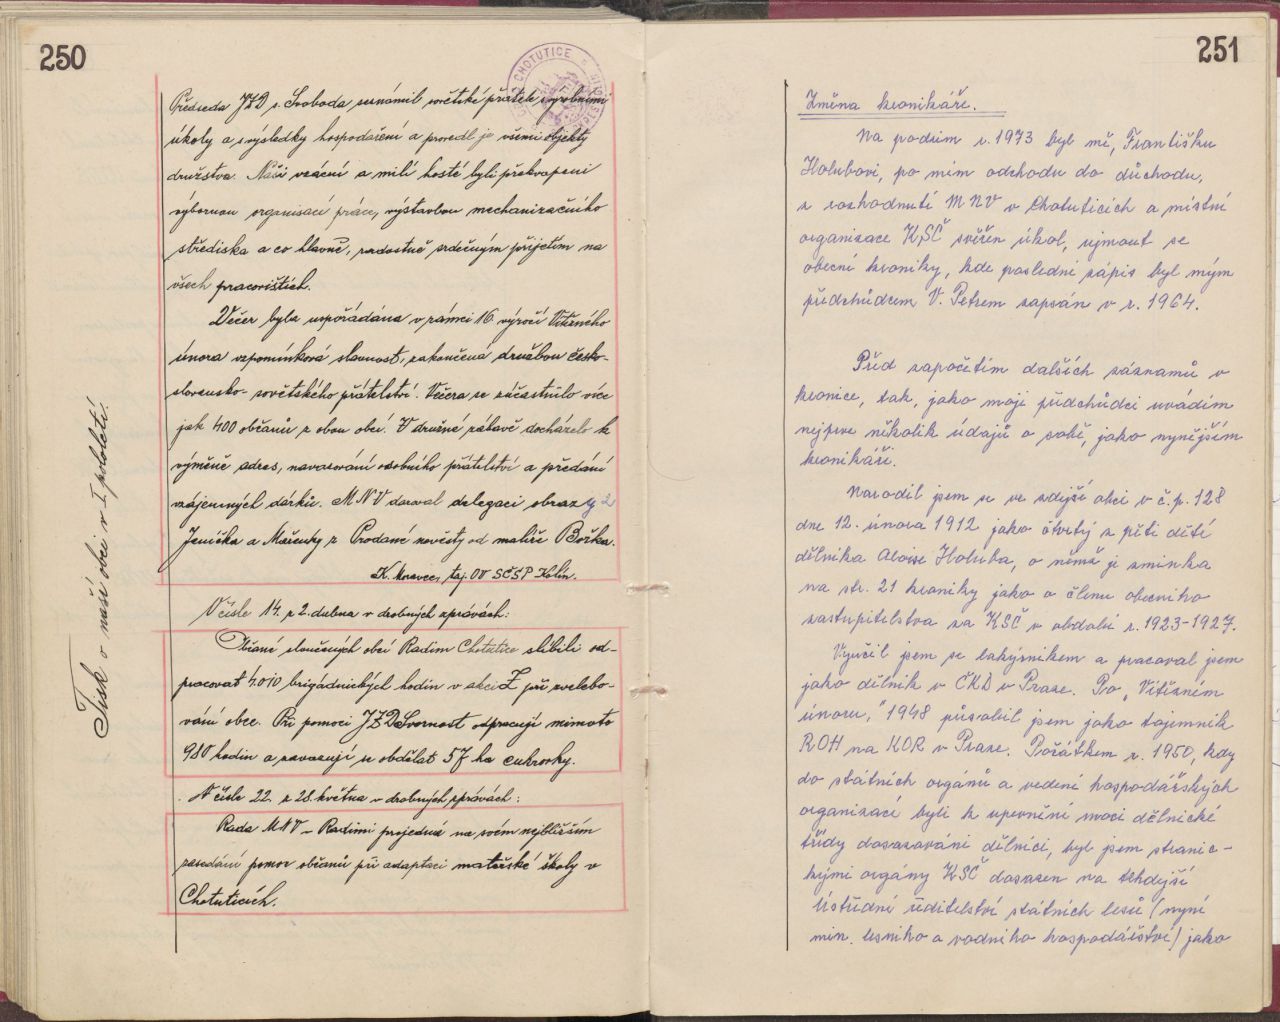 250
Předseda JZD s. Svoboda seznámil sovětské přátele s výrobními
úkoly a s výsledky hospodaření a provedl je všemi objekty
družstva. Naši vzácní a milí hosté byli překvapeni
výbornou organisací práce, výstavbou mechanizačního
střediska a co hlavně, radostně srdečným přijetím na
všech pracovištích.
Večer byla uspořádána v rámci 16. výročí Vítězného
února vzpomínková slavnost, zakončená družbou česko-
slovensko-sovětského přátelství. Večera se zúčastnilo více
jak 400 občanů z obou obcí. V družné zábavě docházelo k
výměně adres, navazování osobního přátelství a předání
vzájemných dárků. MNV daroval delegaci obrazy 2
Jeníčka a Mařenky z Prodané nevěsty od malíře Boška.
K. Moravec, taj. OV SČSP Kolín.
V čísle 14. z 2. dubna v drobných zprávách:
Občané sloučených obcí Radim Chotutice slíbili od-
pracovat 4.010 brigádnických hodin v akci Z při zvelebo-
vání obce. Při pomoci JZD Svornost odpracují mimoto
980 hodin a zavazují se obdělat 57 ha cukrovky.
V čísle 22. z 28. května v drobných zprávách:
Rada MNV - Radimi projedná na svém nejbližším
zasedání pomoc občanů při adaptaci mateřské školy v
Chotuticích.
Tisk o naší obci v I. pololetí.
CHOTUTICE
251
Změna kronikáře.
Na podzim r. 1973 byl mě, Františku
Holubovi, po mém odchodu do důchodu,
z rozhodnutí MNV v Chotuticích a místní
organizace KSČ svěřen úkol, ujmout se
obecní kroniky, kde poslední zápis byl mým
předchůdcem V. Petrem zapsán v r. 1964.
Před započetím dalších záznamů v
kronice, tak, jako moji předchůdci uvádím
nejprve několik údajů o sobě, jako nynějším
kronikáři.
Narodil jsem se ve zdejší obci v č.p. 128
dne 12. února 1912 jako čtvrtý z pěti dětí
dělníka Aloise Holuba, o němž je zmínka
na str. 21 kroniky jako o členu obecního
zastupitelstva za KSČ v období r. 1923-1927.
Vyučil jsem se lakýrníkem a pracoval jsem
jako dělník v ČKD v Praze. Po „Vítězném
únoru," 1948 působil jsem jako tajemník
ROH na KOR v Praze. Počátkem r. 1950, kdy
do státních orgánů a vedení hospodářských
organizací byli k upevnění moci dělnické
třídy dosazováni dělníci, byl jsem stranic-
kými orgány KSČ dosazen na tehdejší
Ústřední ředitelství státních lesů (nyní
min. lesního a vodního hospodářství) jako